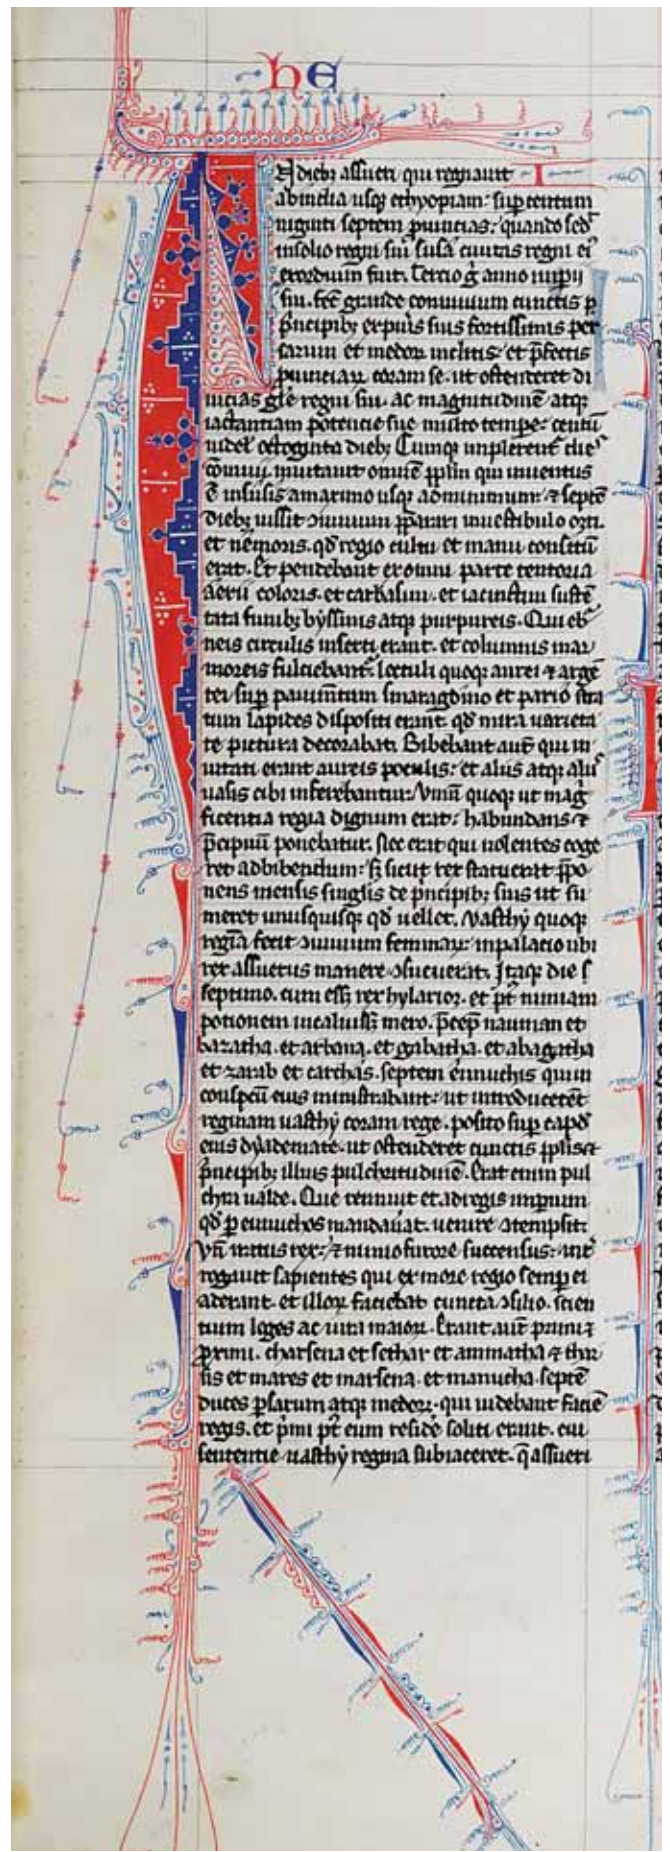 hE
N dieb; assueri qui regnauit I
ab india usq; ethyopiam: sup centum
uiginti septem prouincias: quando sed
in solio regni sui susa ciuitas regni ei
exordium fuit. Tercio g anno imperii
sui. fec grande conuiuium cunctis p
principib; et pueris suis fortissimis per
sarum et medor inclitis: et prefectis
prouinciar coram se. ut ostenderet di
uicias gle regni sui. ac magnitudinē atq;
iactantiam potencie sue. multo tempe: centū
uidel octoginta dieb; Cumq; implerent dies
conuiuii. inuitauit omnē pplm qui inuentus
ē in susis a maximo usq; ad minimum: ⁊ septē
dieb; iussit ɔuiuium pparari in uestibulo orti.
et nemoris. qd regio cultu et manu consitū
erat. Et pendebant ex omni parte tentoria
aerii coloris. et carbasini. et iacinctini sustē
tata funib; byssinis atq; purpureis. Qui ebr
neis circulis inserti erant. et columnis mar
moreis fulciebant. lectuli quoq; aurei ⁊ argē
tei sup pauimtum smaragdino et pario stra
tum lapides dispositi erant. qd mira uarieta
te pictura decorabat. Bibebant aut qui in
uitati erant aureis poculis: et aliis atq; aliis
uasis cibi inferebantur. Vinū quoq; ut mag
ficentia regia dignum erat: habundans ⁊
precipuū ponebatur. Nec erat qui nolentes coge
ret ad bibendum: s; sicut rex statuerat ppo
nens mensis singlis de principib; suis ut su
meret unusquisq; qd uellet. Vasthy quoq;
regina fecit ɔuiuium feminar: in palacio ubi
rex assuerus manere ɔsueuerat. Itaq; die
septimo. cum ess; rex hylarior. et pt nimiam
potionem incaluiss; mero. precep nauman et
bazatha. et arbana. et gabatha. et abagatha
et zarab et carchas. septem eunuchis qui in
conspectu eius ministrabant: ut introducerent
reginam uasthy coram rege. posito sup capd
eius dyademate. ut ostenderet cunctis pplis et
principib; illius pulchritudinē. Erat enim pul
chra ualde. Que rennuit et ad regis imperium
qd p eunuchos mandauat. uenire ɔtempsit.
Vn iratus rex: ⁊ nimio furore succensus: int
rogauit sapientes qui ex more regio semp ei
aderant. et illor faciebat cuncta ɔsilio. scien
tium leges ac iura maior. Erant aut primi ⁊
proximi. charsena et sethar et ammatha ⁊ thar
sis et mares et marsena. et manucha. septē
duces psarum atq; medor. qui uidebant faciē
regis. et primi pt eum residere soliti erant. cui
sententie uasthy regina subiaceret. q assueri